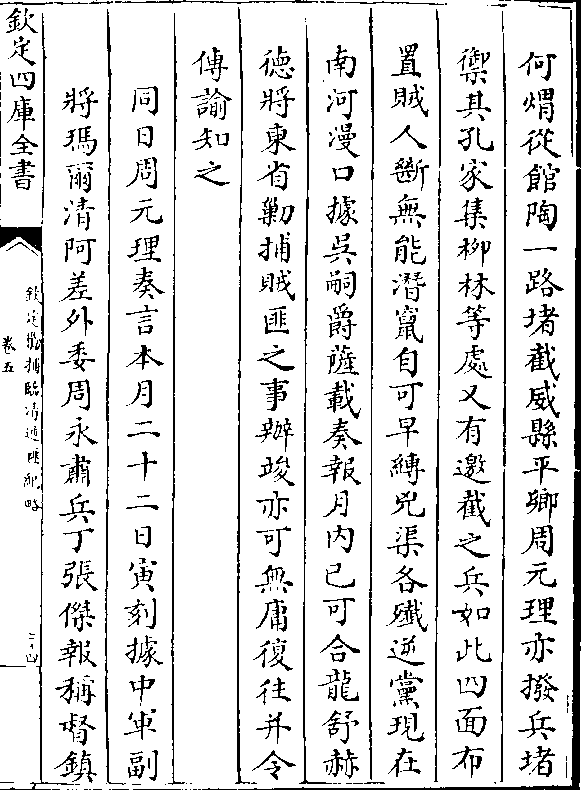 何煟從館陶一路堵截威縣平鄉周元理亦撥兵堵
禦其孔家集柳林等處又有邀截之兵如此四面布
置賊人斷無能潛竄自可早縛兇渠各殲逆黨現在
南河漫口據吳嗣爵薩載奏報月内已可合龍舒赫
徳將東省勦捕賊匪之事辦竣亦可無庸復往并令
傳諭知之
同日周元理奏言本月二十二日寅刻據中軍副
將瑪爾清阿差外委周永肅兵丁張傑報稱督鎮
欽定四庫全書
欽定勦捕臨清逆匪紀略
卷五
三十四